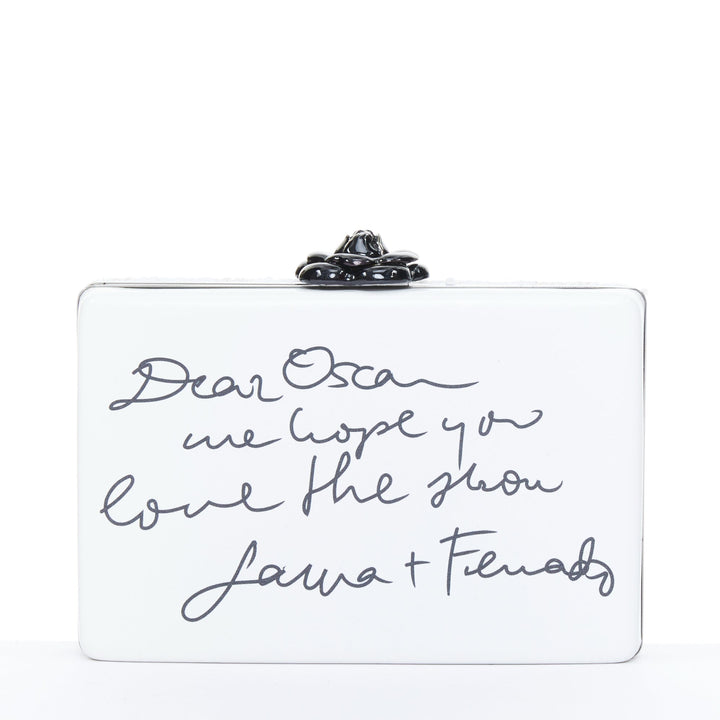 Dear Oscar
we hope you
love the show
Laura + Fernando